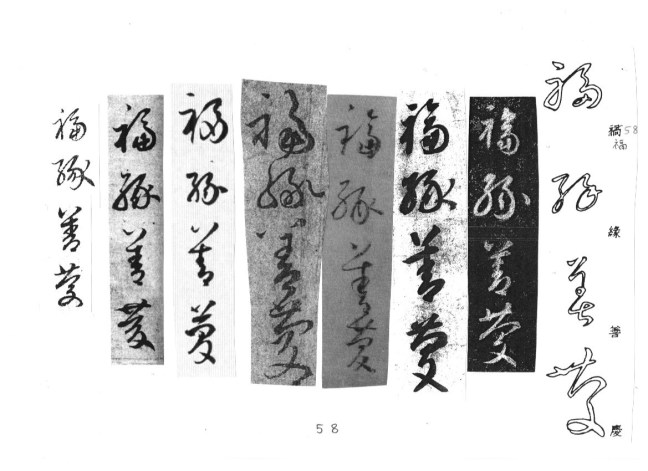 禍福緣善慶
58
福緣善慶
福緣善慶
福緣善慶
福緣善慶
福緣善慶
福緣善慶
福緣善慶
福緣善慶
58